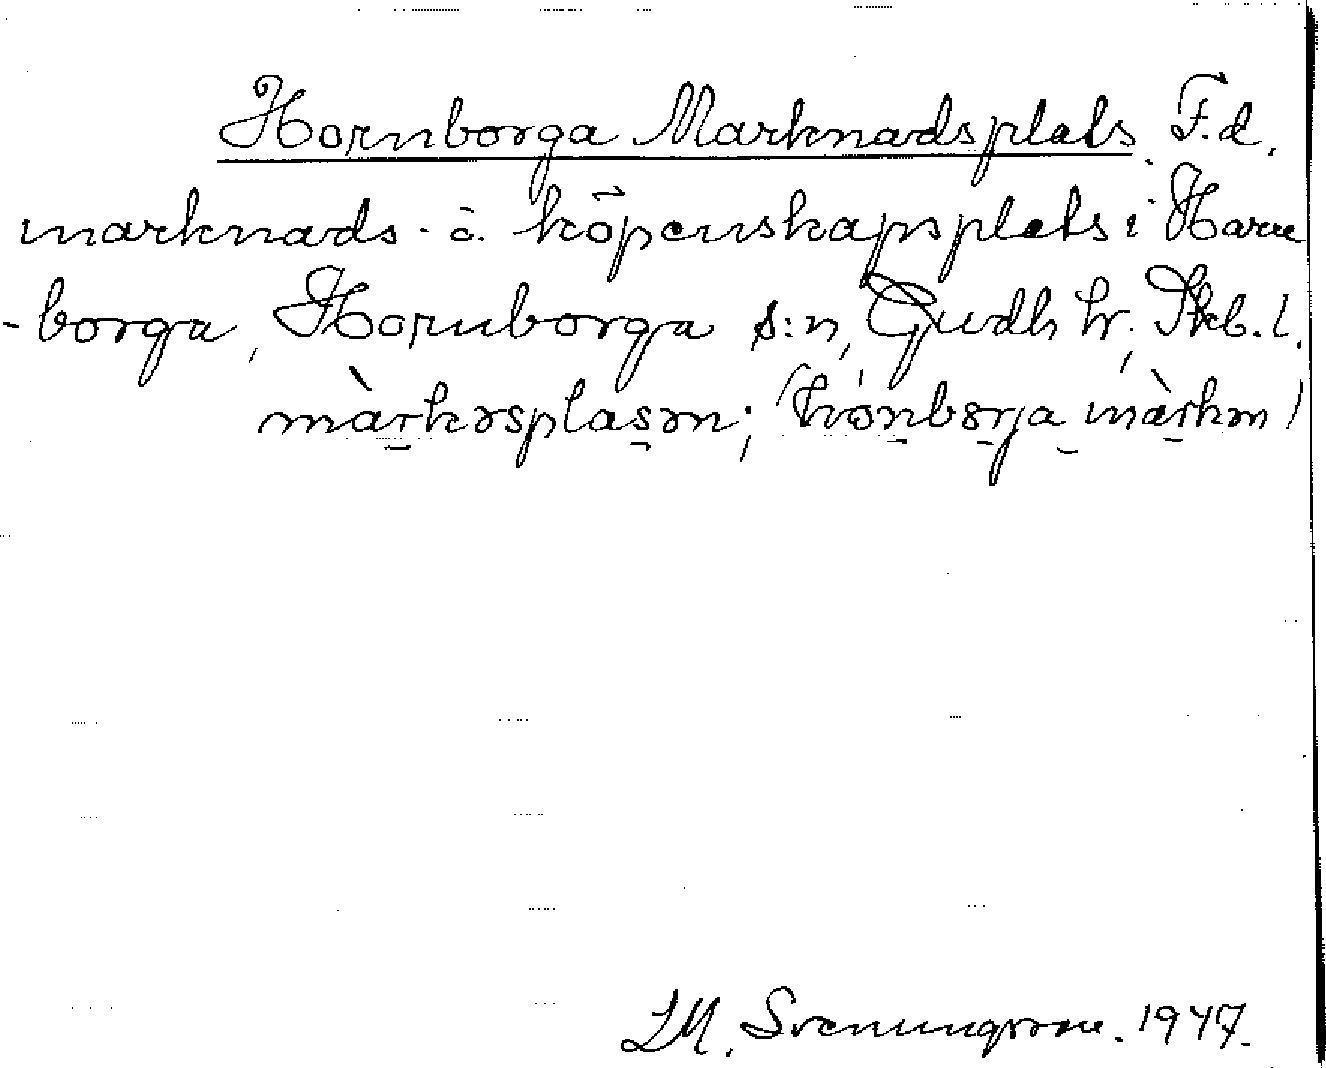 Hornborga Marknadsplats. F.d.
marknads- å. köpenskapsplats i Horn
-borga, Hornborga s:n, Gudh hr, Skb. l.
màrkəsplasən; (hónbǝrja màrkən)
LM. Svenungsson. 1947.